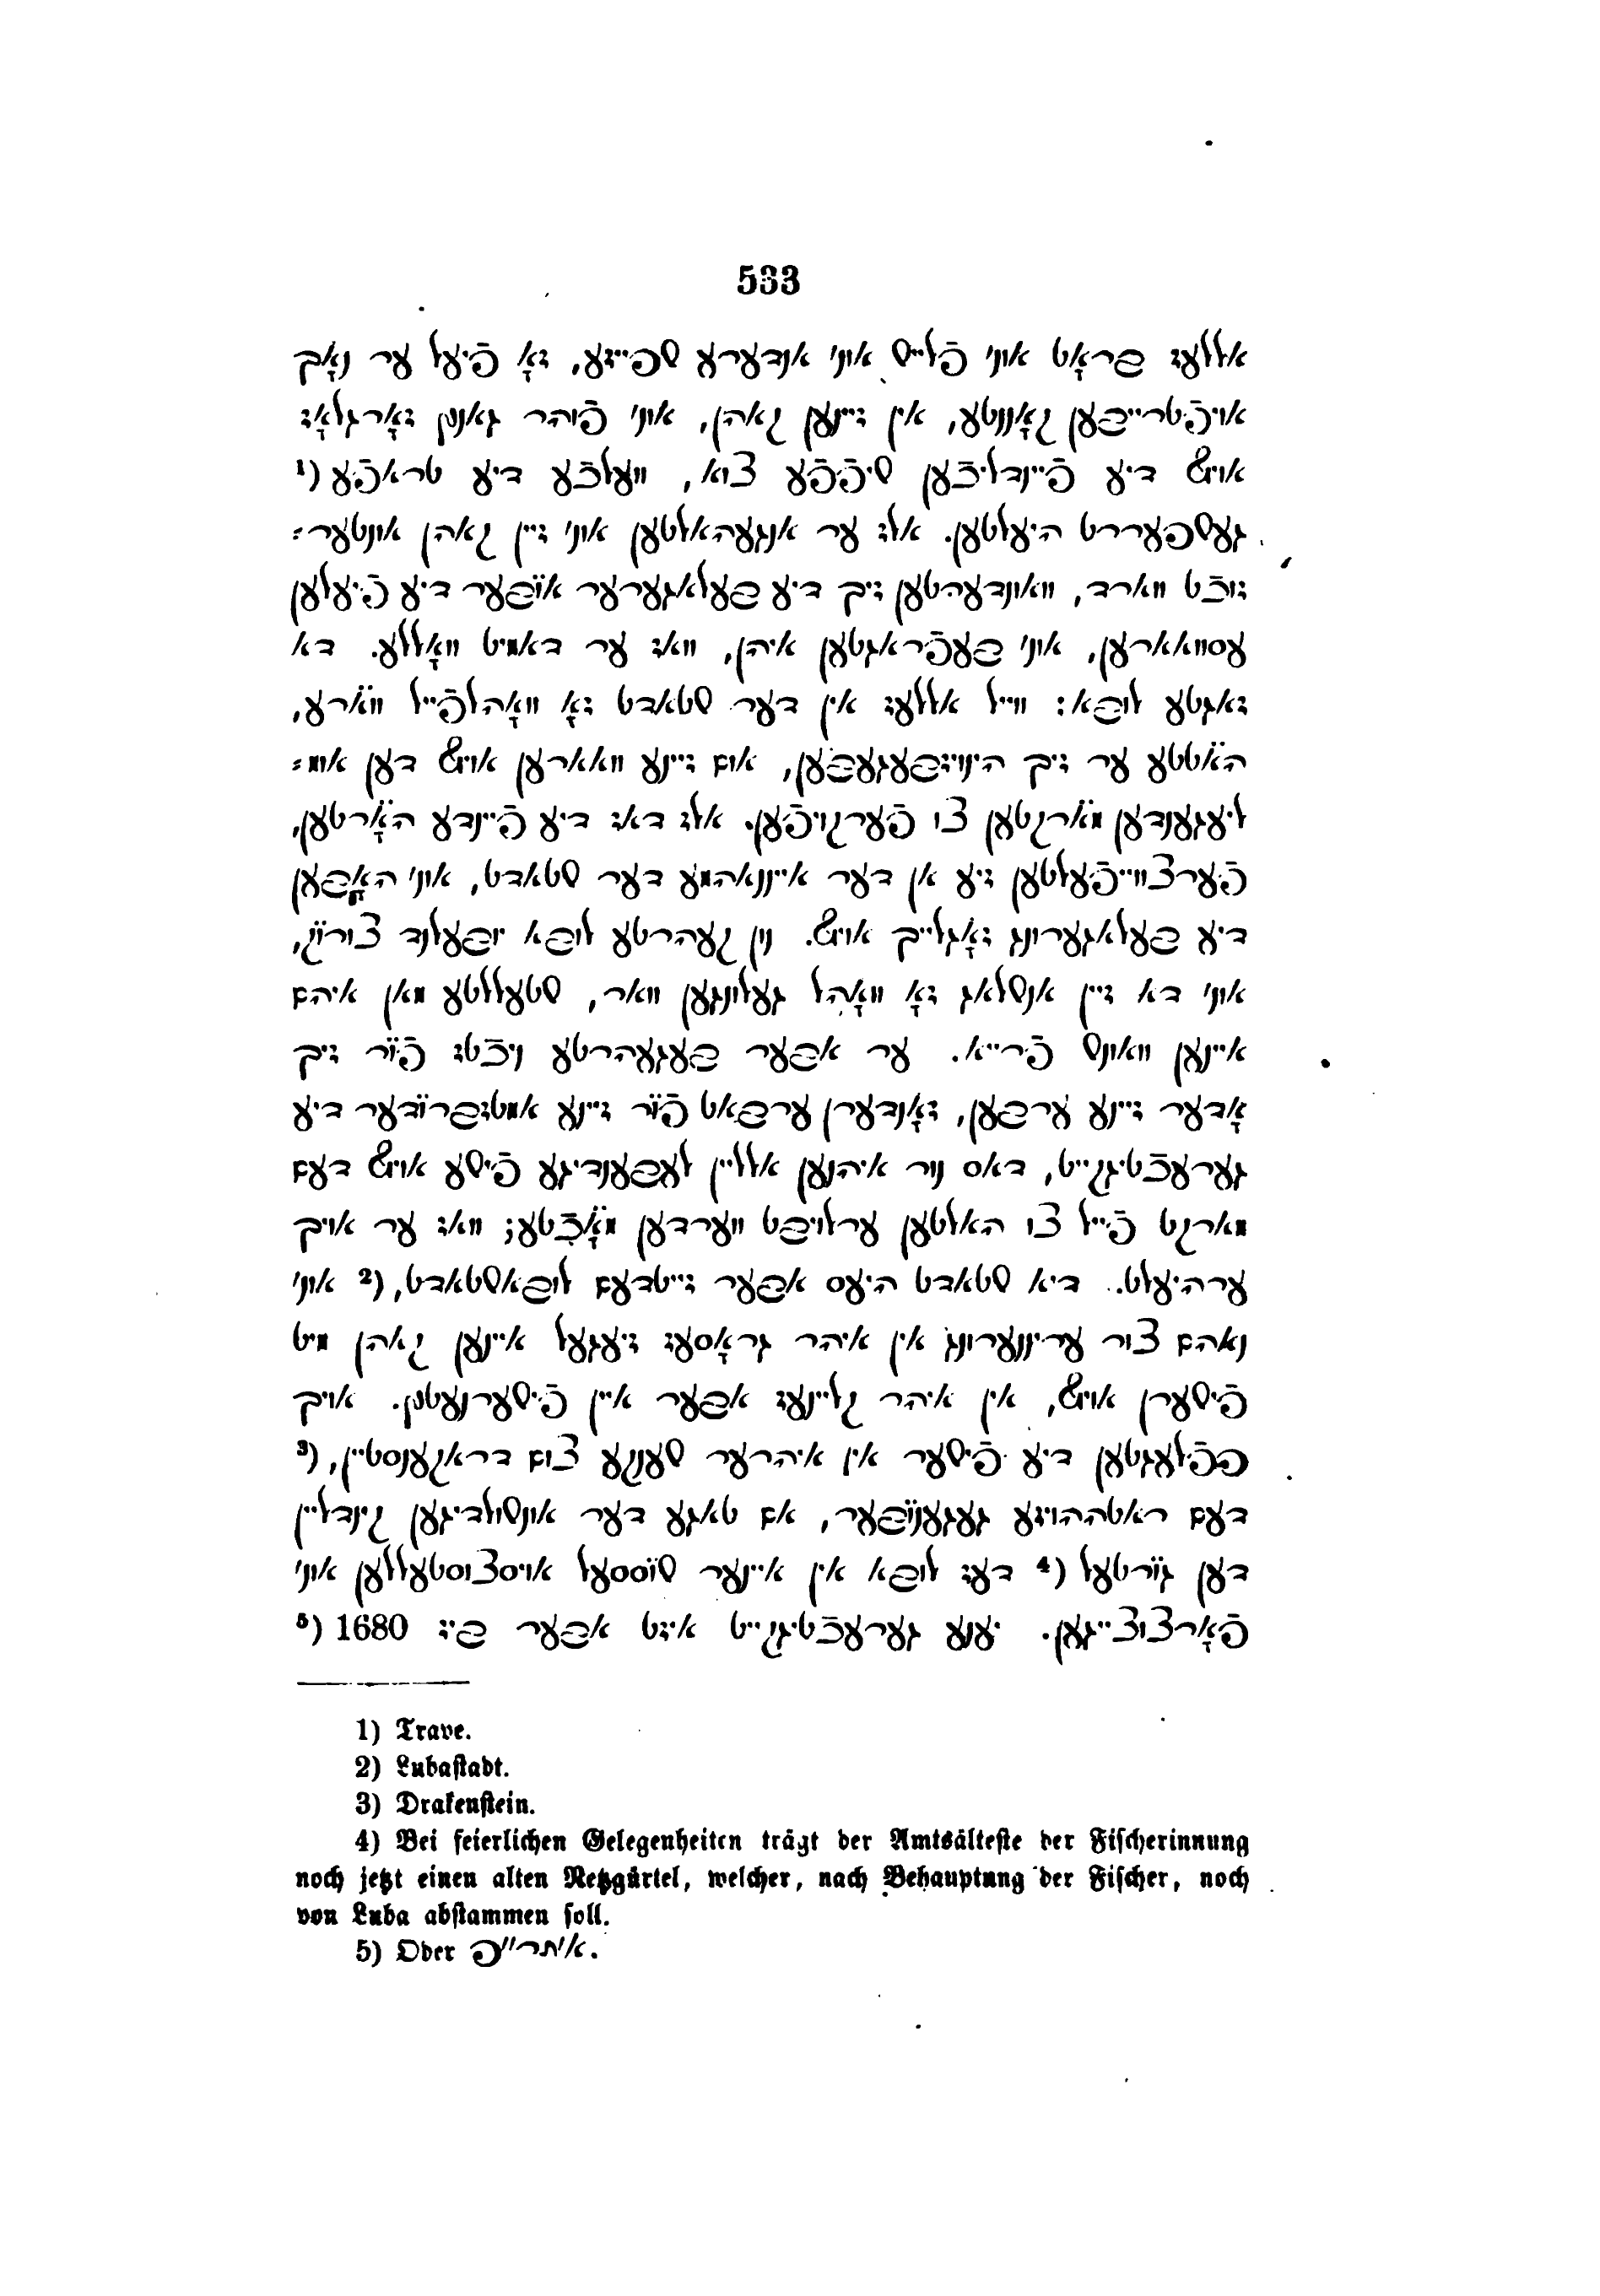 533
אללעז בראָט אונ' פֿלייש אונ' אנדערע שפייזע, זאָ פֿיעל ער נאָך
אויפֿטרייבען קאָננטע, אין זיינען קאהן, אונ' פֿוהר גאנץ זאָרגלאָז
אויף דיע פֿיינדליכֿען שיפֿפֿע צוא, וועלכֿע דיע טראפֿע (1
געשפעררט היעלטען. אלז ער אנגעהאלטען אונ' זיין קאהן אונטער⸗
זוכֿט ווארד, וואונדערטען זיך דיע בעלאגערער אובער דיע פֿיעלען
עסוואארען, אונ' בעפֿראגטען איהן, וואז ער דאמיט וואָללע. דא
זאגטע לובא: ווייל אללעז אין דער שטאדט זאָ וואָהלפֿייל ווארע,
האטטע ער זיך הינויזבעגעבען, אום זיינע וואארען אויף דען אומ⸗
ליעגענדען מארקטען צו פֿערקויפֿען. אלז דאז דיע פֿיינדע האָרטען,
פֿערצווייפֿעלטען זיע אן דער איינאהמע דער שטאדט, אונ' האָבען
דיע בעלאגערונג זאָגלייך אויף. נון קעהרטע לובא יובעלנד צוריק,
אונ' דא זיין אנשלאג זאָ וואָהל געלונגען וואר, שטעללטע מאן איהם
איינען וואונש פֿרייא. ער אבער בעגעהרטע ניכֿטז פֿור זיך
אָדער זיינע ערבען, זאָנדערן ערבאט פֿור זיינע אמטזברודער דיע
גערעכֿטיגקייט, דאס נור איהנען אלליין לעבענדיגע פֿישע אויף דעם
מארקט פֿייל צו האלטען ערלויבט ווערדען מאָכֿטע; וואז ער אויך
ערהיעלט. דיא שטאדט היעס אבער זייטדעם לובאשטאדט, (2 אונ'
נאהם צור ערינערונג אין איהר גראָסעז זיעגעל איינען קאהן מיט
פֿישערן אויף, אין איהר קליינעז אבער איין פֿישערנעטץ. אויך
פפֿלעגטען דיע פֿישער אין איהרער שענקע צום דראקענסטיין, (3
דעם ראטההויזע געגענובער, אם טאגע דער אונשולדיגען קינדליין
דען גורטעל (4 דעז לובא אין איינער שוססעל אויסצוסטעללען אונ'
פֿאָרצוצייגען. יענע גערעכֿטיגקייט איזט אבער ביז 1680 (5
1) Trave.
2) Lubaſtadt.
3) Drakenſtein.
4) Bei feierlichen Gelegenheiten trägt der Amtsälteſte der Fiſcherinnung
noch jetzt einen alten Netzgürtel, welcher, nach Behauptung der Fiſcher, noch
von Luba abſtammen ſoll.
5) Oder א'תר"פ.